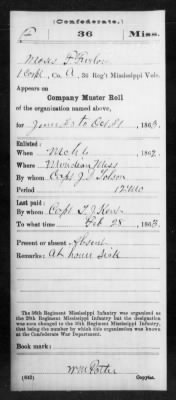 (Confederate.)
F 36 Miss.
Moses F
1 Corpl, Co. A, 36 Reg't Mississippi Vols.
Appears on
Company Muster Roll
of the organization named above,
for June 30 to Oct 31, 1863.
Enlisted:
When Mch 6, 1862.
Where Meridian Miss
By whom Capt J.
Period 12 mo
Last paid:
By whom Capt T. J.
To what time Feb 28, 1863.
Present or absent Absent
Remarks: At home sick
The 36th Regiment Mississippi Infantry was organized as
the 29th Regiment Mississippi Infantry but the designation
was soon changed to the 36th Regiment Mississippi Infantry,
that being the number by which this organization was known
at the Confederate War Department.
Book mark:
(642) Wm Potter Copyist.